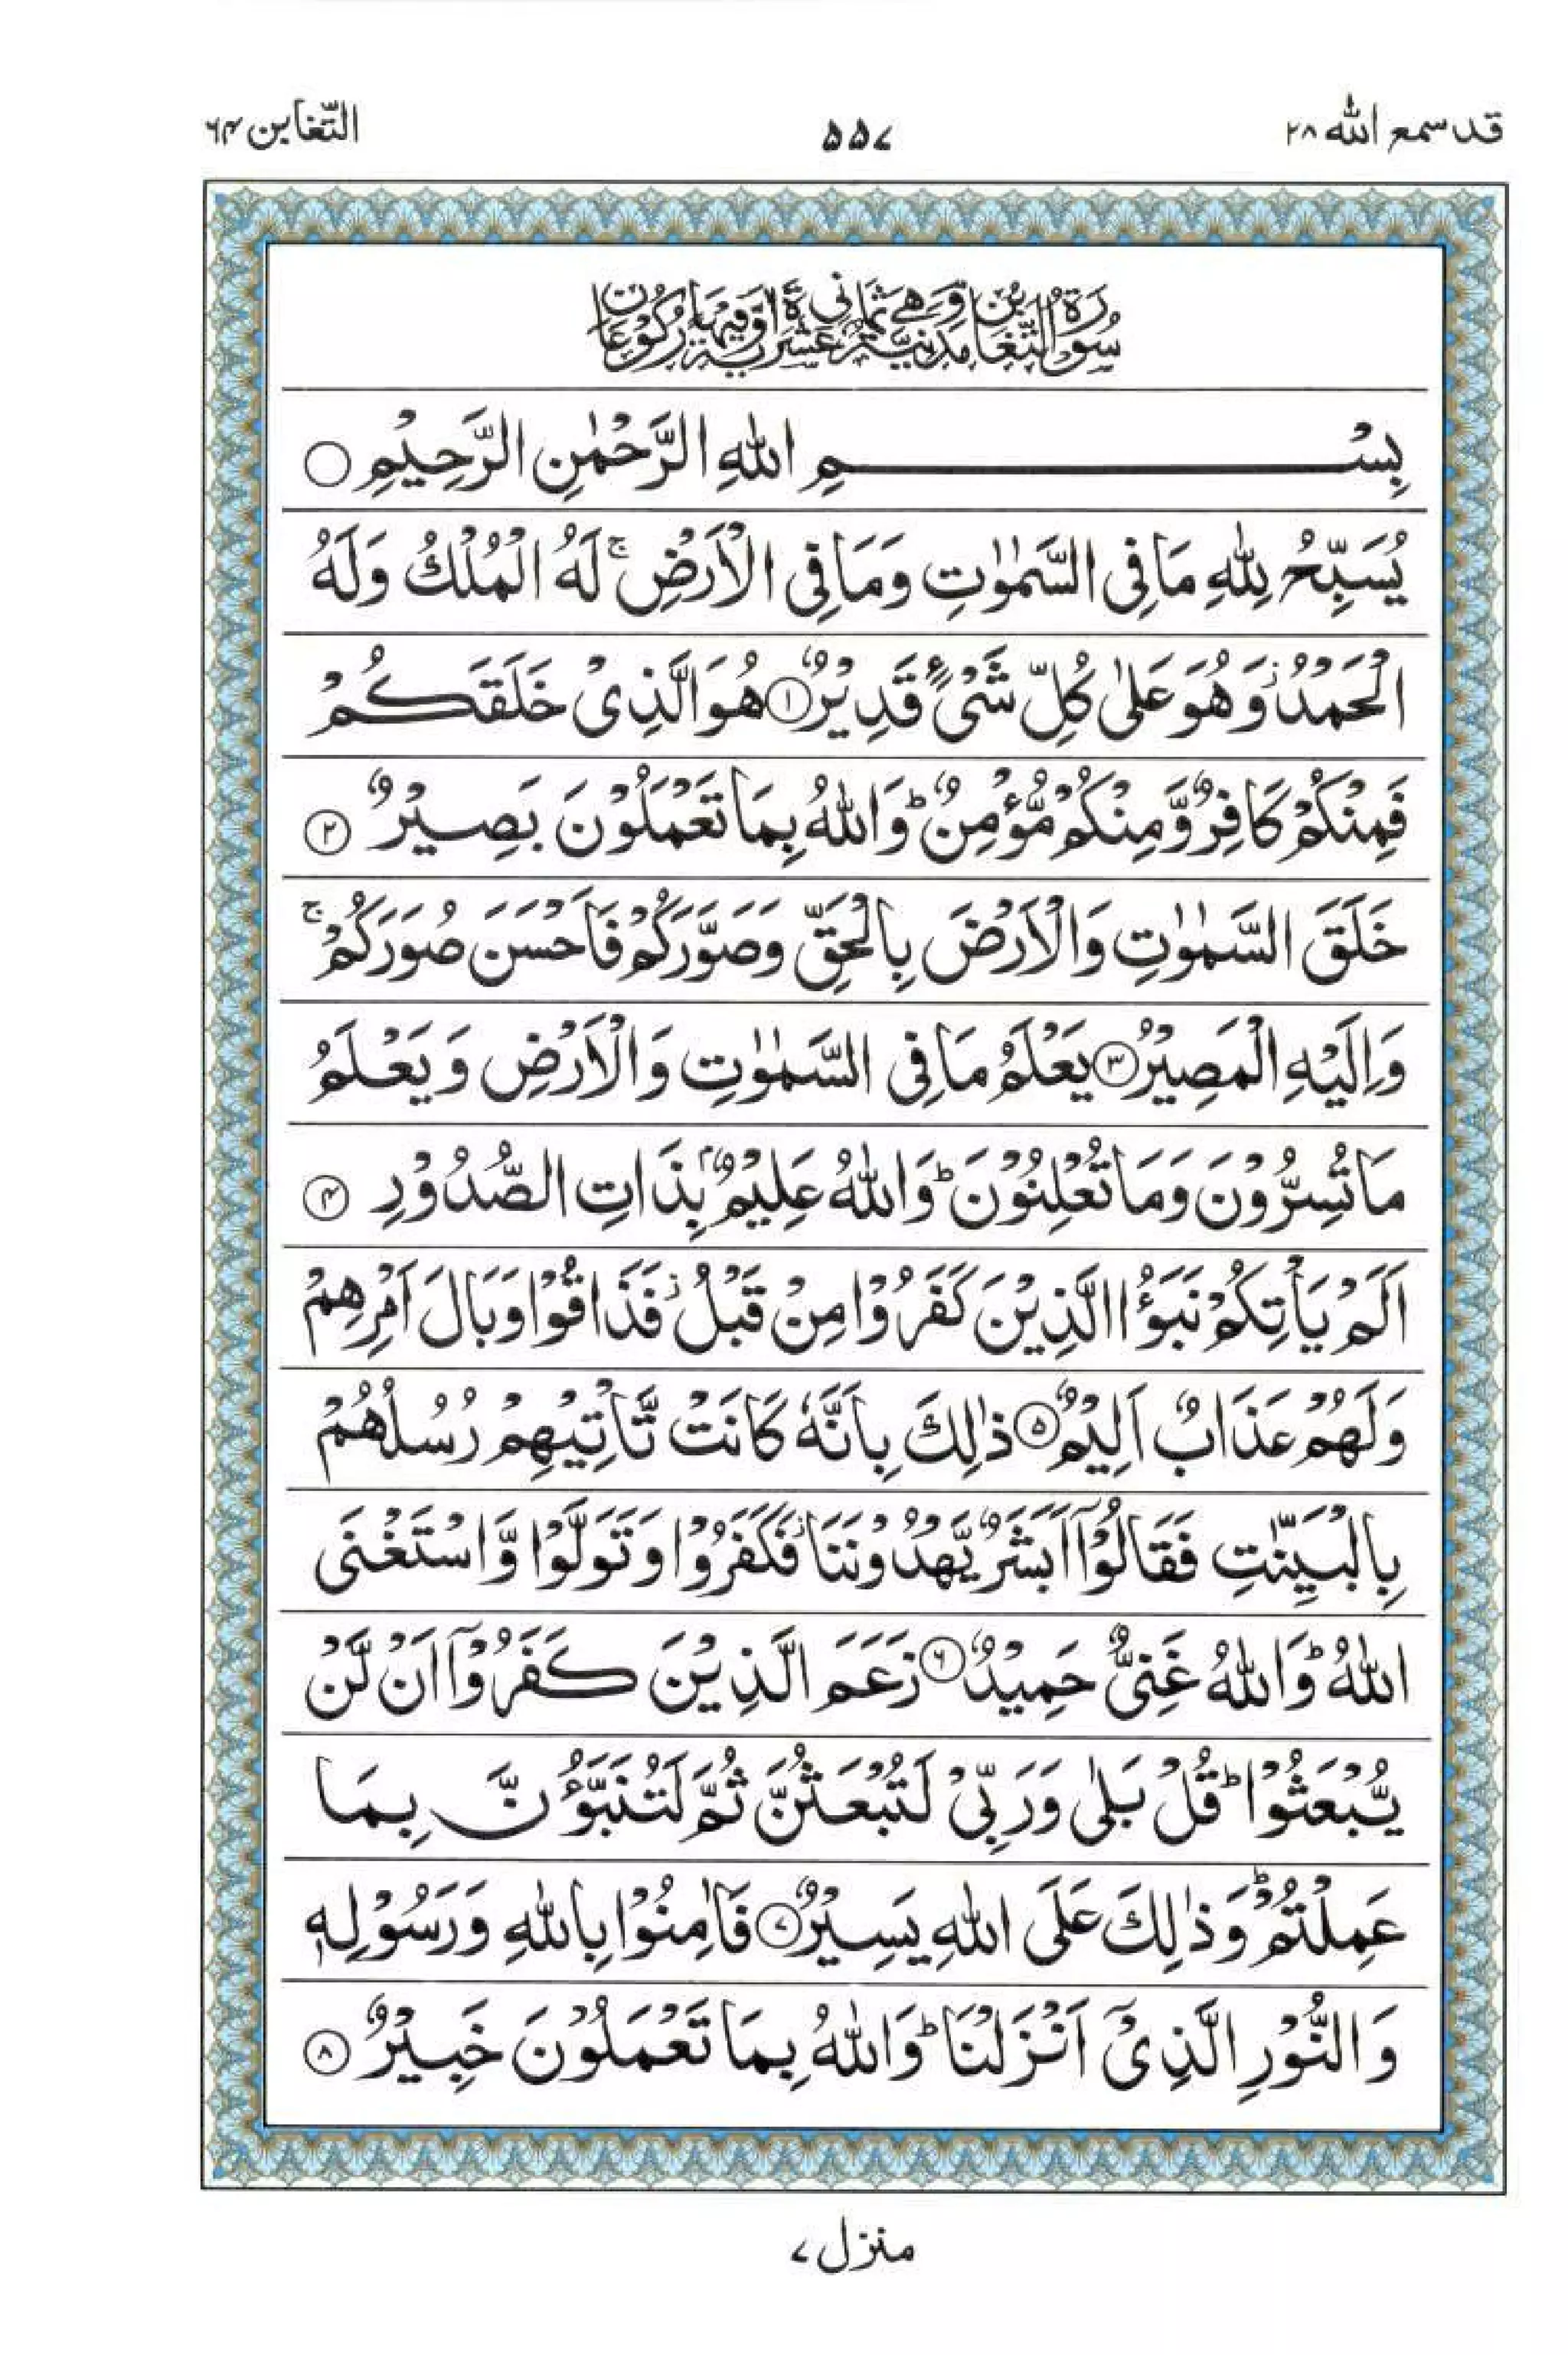 قد سمع الله ٢٨
٥٥٧
التّغابن ٦٤
سُوْرَةُ التَّغَابُنِ مَدَنِيَّةٌ وَّهِيَ ثَمَانِيَ عَشْرَةَ اٰيَةً وَّفِيْهَا رُكُوْعَانِ
بِسْــــــــــــــمِ اللهِ الرَّحْمٰنِ الرَّحِيْمِ ○
يُسَبِّحُ لِلّٰهِ مَا فِى السَّمٰوٰتِ وَمَا فِى الْاَرْضِ ۚ لَهُ الْمُلْكُ وَلَهُ
الْحَمْدُ ۡ وَهُوَ عَلٰى كُلِّ شَىْءٍ قَدِيْرٌ ١ هُوَ الَّذِىْ خَلَقَكُمْ
فَمِنْكُمْ كَافِرٌ وَّمِنْكُمْ مُّؤْمِنٌ ؕ وَاللهُ بِمَا تَعْمَلُوْنَ بَصِيْرٌ ٢
خَلَقَ السَّمٰوٰتِ وَالْاَرْضَ بِالْحَقِّ وَصَوَّرَكُمْ فَاَحْسَنَ صُوَرَكُمْ ۚ
وَاِلَيْهِ الْمَصِيْرُ ٣ يَعْلَمُ مَا فِى السَّمٰوٰتِ وَالْاَرْضِ وَيَعْلَمُ
مَا تُسِرُّوْنَ وَمَا تُعْلِنُوْنَ ؕ وَاللهُ عَلِيْمٌۢ بِذَاتِ الصُّدُوْرِ ٤
اَلَمْ يَاْتِكُمْ نَبَؤُا الَّذِيْنَ كَفَرُوْا مِنْ قَبْلُ ۡ فَذَاقُوْا وَبَالَ اَمْرِهِمْ
وَلَهُمْ عَذَابٌ اَلِيْمٌ ٥ ذٰلِكَ بِاَنَّهٗ كَانَتْ تَّاْتِيْهِمْ رُسُلُهُمْ
بِالْبَيِّنٰتِ فَقَالُوْۤا اَبَشَرٌ يَّهْدُوْنَنَا ۡ فَكَفَرُوْا وَتَوَلَّوْا وَّاسْتَغْنَى
اللهُ ؕ وَاللهُ غَنِىٌّ حَمِيْدٌ ٦ زَعَمَ الَّذِيْنَ كَفَرُوْۤا اَنْ لَّنْ
يُّبْعَثُوْا ؕ قُلْ بَلٰى وَرَبِّىْ لَتُبْعَثُنَّ ثُمَّ لَتُنَبَّؤُنَّ بِمَا
عَمِلْتُمْ ؕ وَذٰلِكَ عَلَى اللهِ يَسِيْرٌ ٧ فَاٰمِنُوْا بِاللهِ وَرَسُوْلِهٖ
وَالنُّوْرِ الَّذِىْۤ اَنْزَلْنَا ؕ وَاللهُ بِمَا تَعْمَلُوْنَ خَبِيْرٌ ٨
منزل ٧